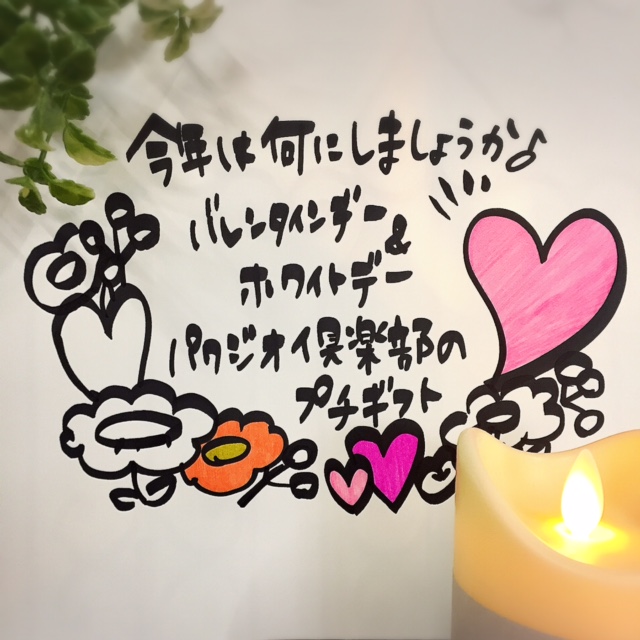 今年は何にしましょうか♪
バレンタインデー
&
ホワイトデー
パワジオ倶楽部の
プチギフト